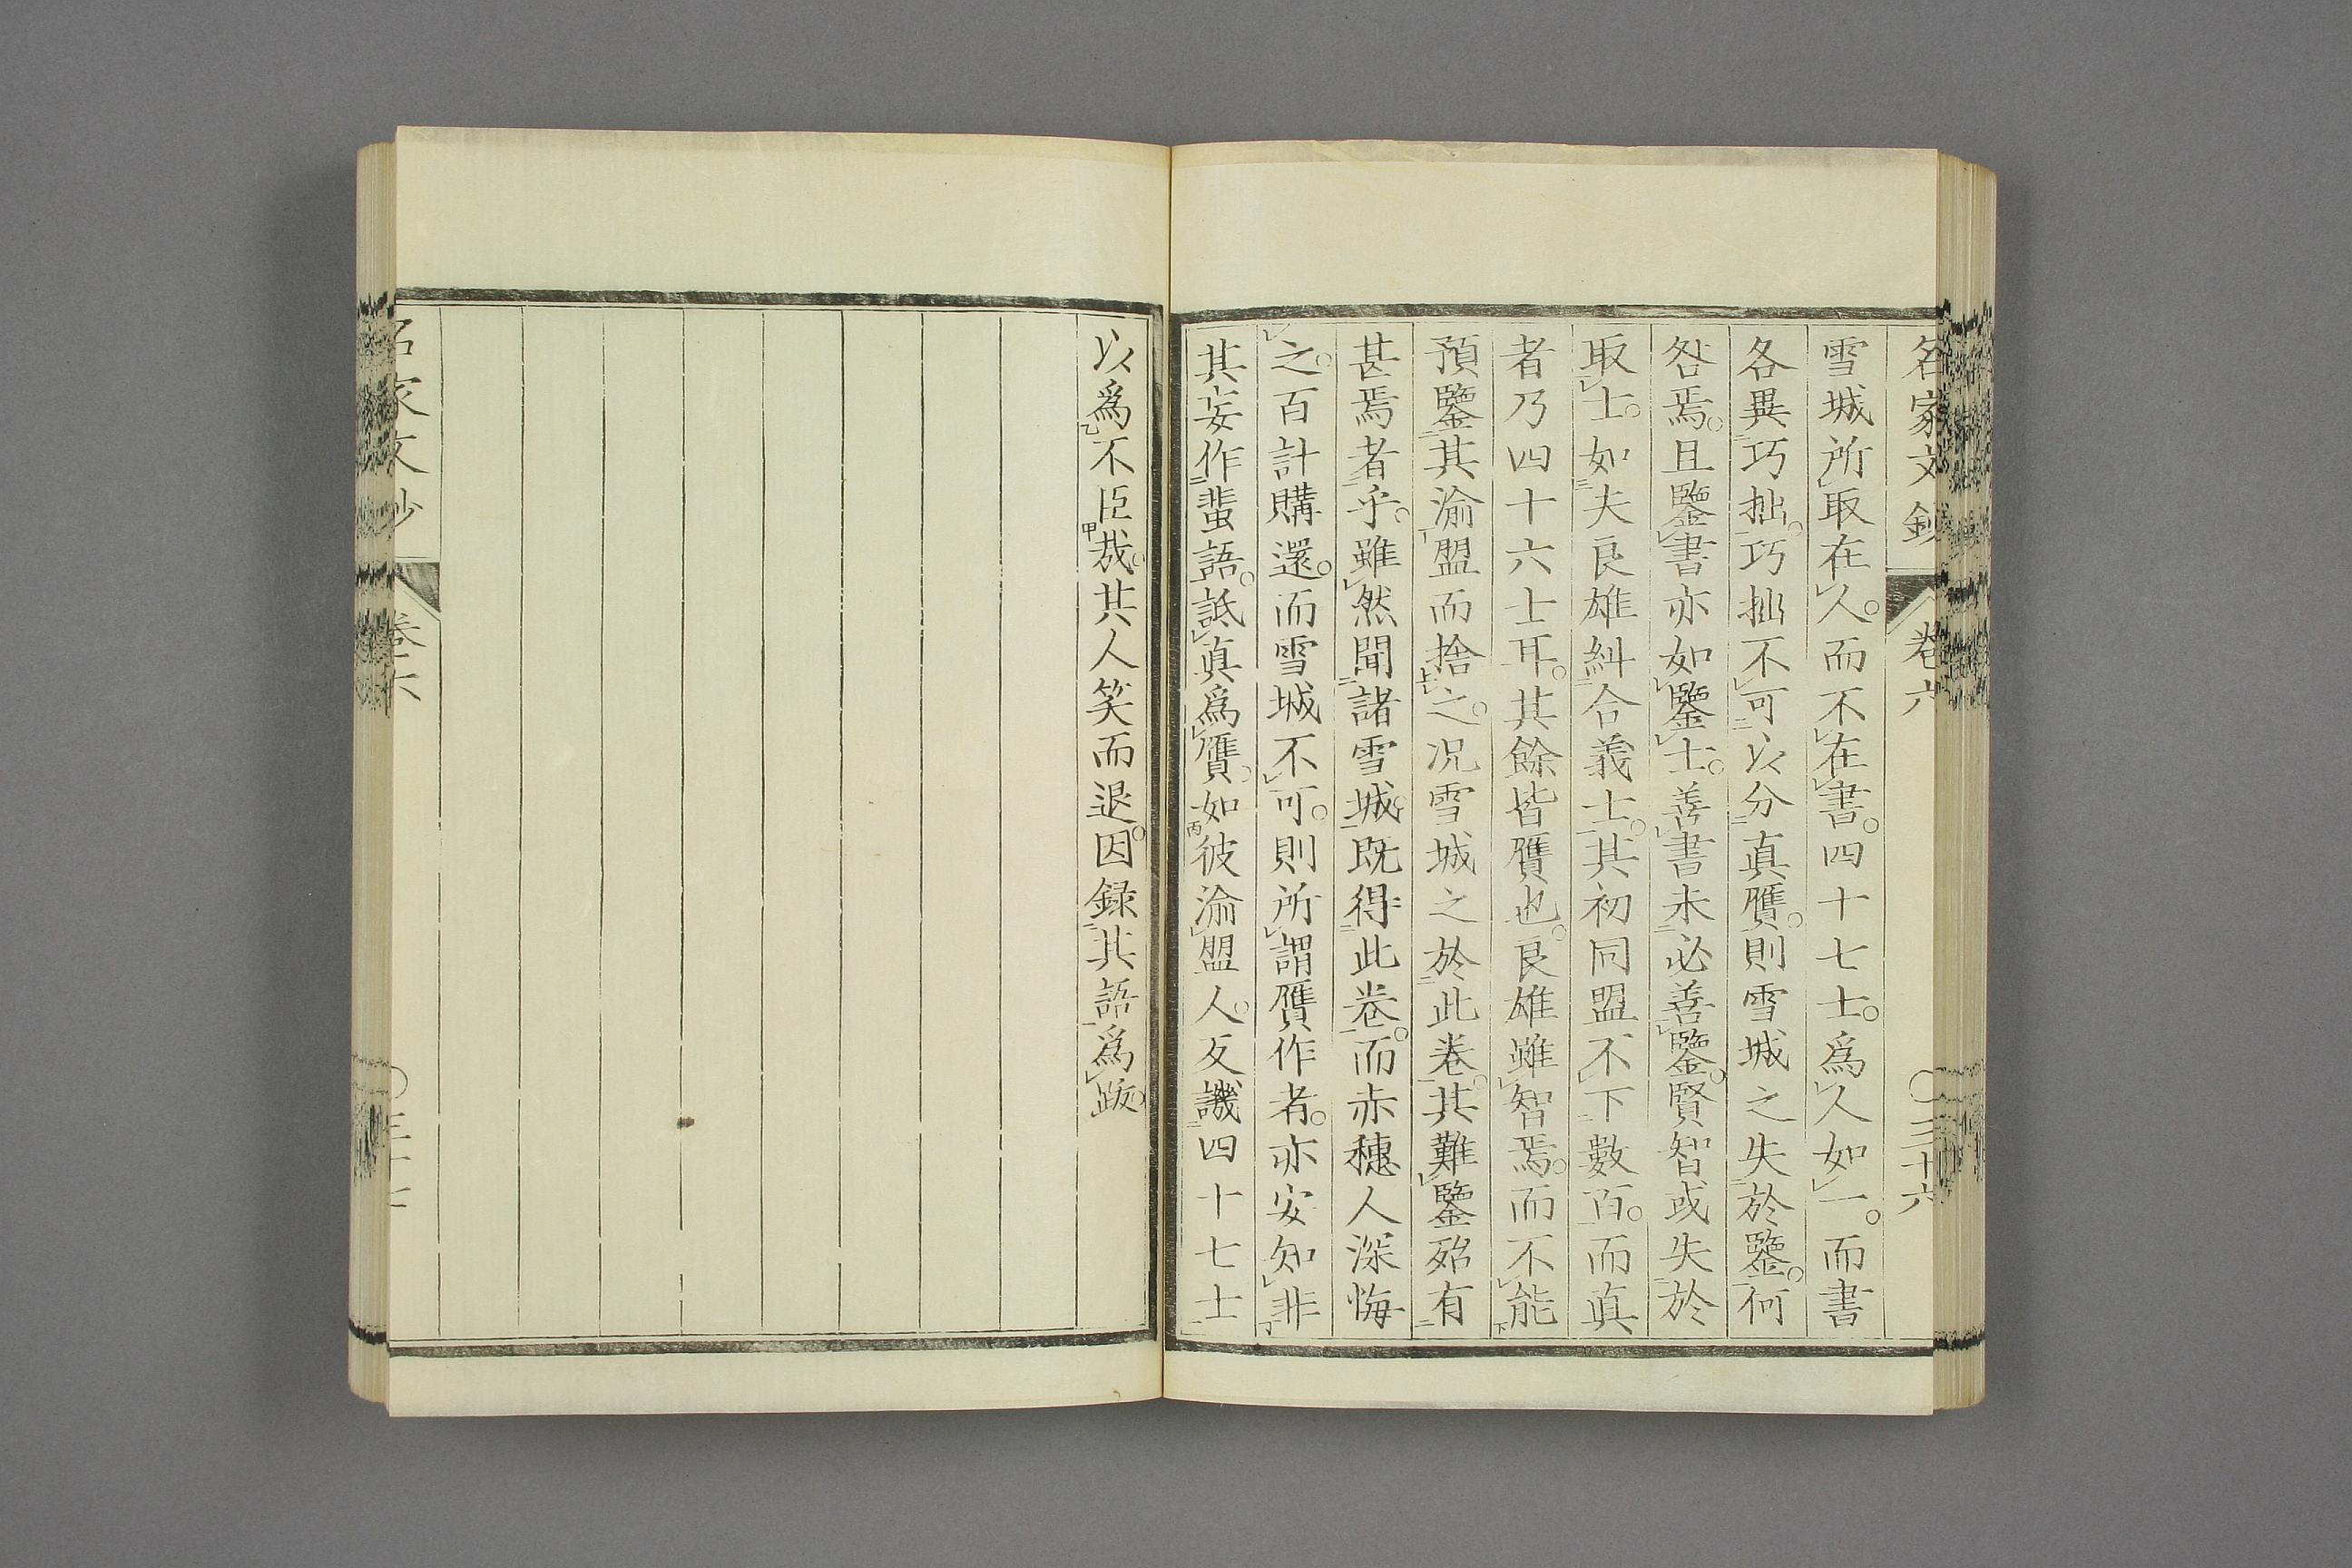 名家文鈔 卷六 〇三十六
雪城所取在人。而不在書。四十七士。爲人如一。而書
各異巧拙。巧拙不可以分真贋。則雪城之失於鑒。何
咎焉。且鑒書亦如鑒士。善書未必善鑒。賢智或失於
取士。如夫良雄糾合義士。其初同盟不下數百。而真
者乃四十六士耳。其餘皆贋也。良雄雖智焉。而不能
預鑒其渝盟而捨之。况雪城之於此卷。其難鑒殆有
甚焉者乎。雖然聞諸雪城。既得此卷。而赤穗人深悔
之。百計購還。而雪城不可。則所謂贋作者。亦安知非
其妄作蜚語。詆真爲贋。如彼渝盟人。反譏四十七士
以爲不臣哉。其人笑而退。因録其語爲跋。
名家文鈔 卷六